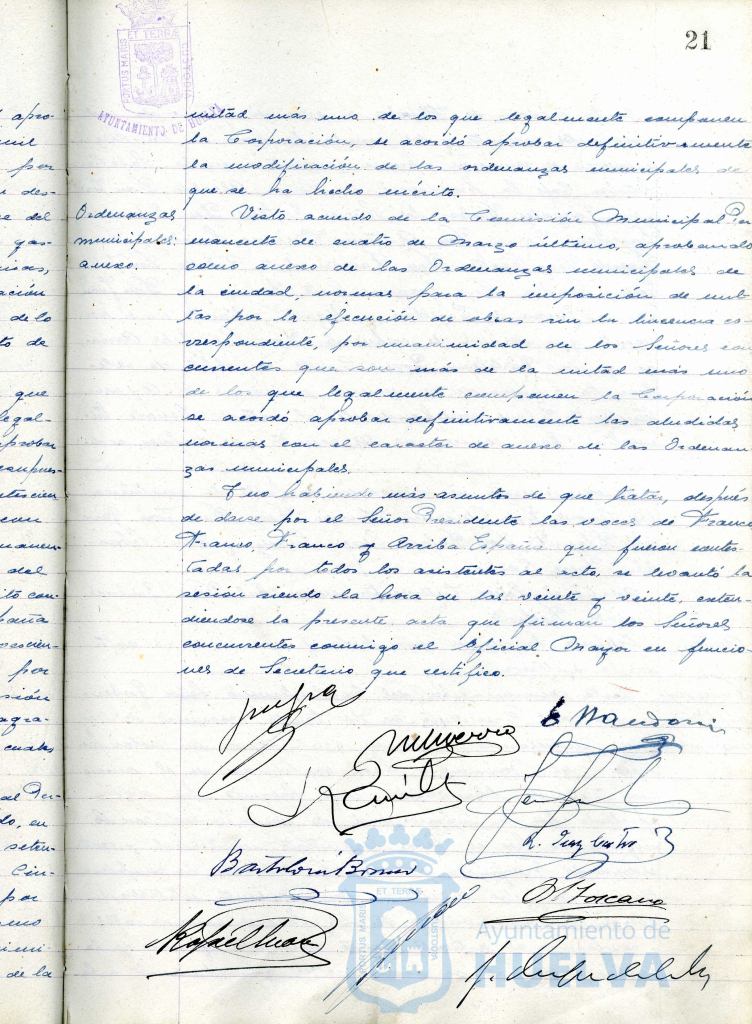 21
PORTUS MARIS ET TERRÆ CUSTODIA
AYUNTAMIENTO DE HUELVA
mitad más uno de los que legalmente componen
la Corporación, se acordó aprobar definitivamente
la modificación de las ordenanzas municipales de
que se ha hecho mérito.
Ordenanzas
municipales:
anexo.
Visto acuerdo de la Comisión Municipal Per
manente de cuatro de Marzo último, aprobando
como anexo de las Ordenanzas municipales de
la ciudad, normas para la imposición de mul
tas por la ejecución de obras sin la licencia co
rrespondiente, por unanimidad de los Señores con
currentes que son más de la mitad más uno
de los que legalmente componen la Corporación
se acordó aprobar definitivamente las aludidas
normas con el caracter de anexo de las Ordenan
zas municipales.
Y no habiendo más asuntos de que tratar, después
de darse por el Señor Presidente las voces de Franco
Franco, Franco y Arriba España que fueron contes-
tadas por todos los asistentes al acto, se levantó la
sesión siendo la hora de las veinte y veinte, exten-
diendose la presente acta que firman los Señores
concurrentes conmigo el Oficial Mayor en funcio-
nes de Secretario que certifico.
Toscano
Rafael
ET TERRÆ
PORTUS MARIS
CUSTODIA
Ayuntamiento de
HUELVA
apro-
por
des-
del
ación
de lo
to de
que
legal-
aprobar
con
del
por
sión
cuatro
al Per-
do, en
por
de la